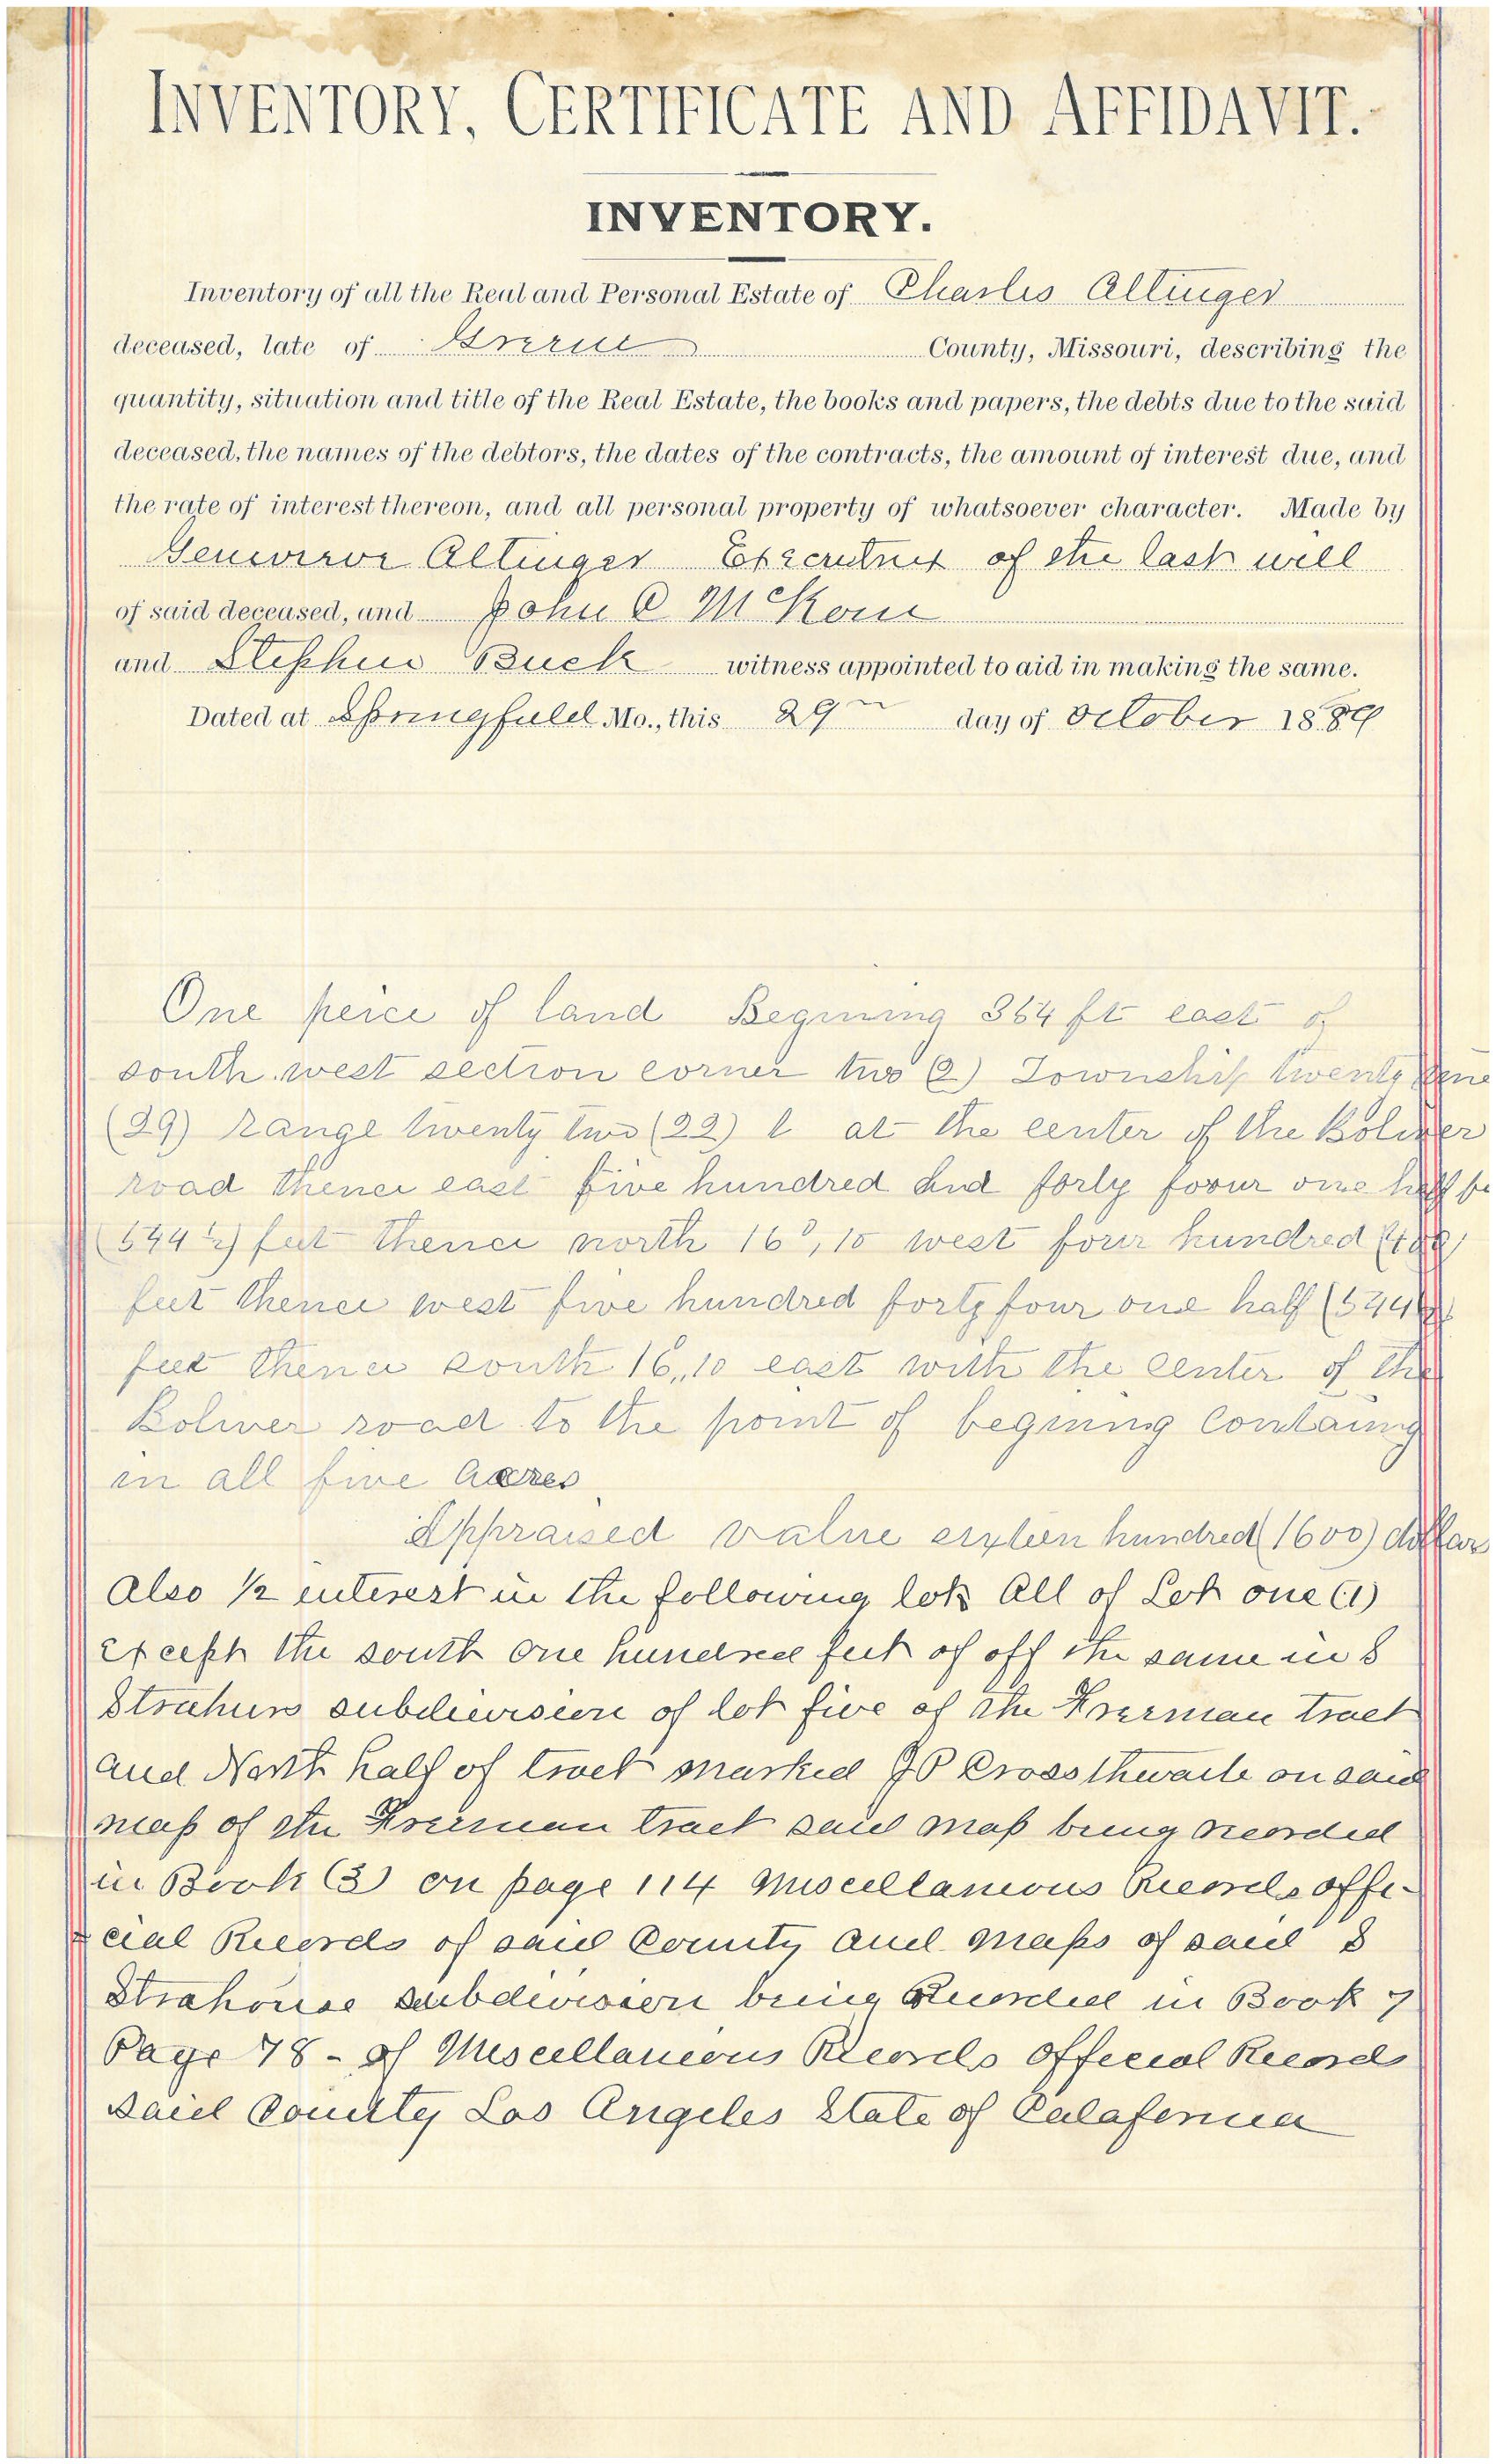 INVENTORY, CERTIFICATE AND AFFIDAVIT.
INVENTORY.
Inventory of all the Real and Personal Estate of Charles Altinger
deceased, late of Greene County, Missouri, describing the
quantity, situation and title of the Real Estate, the books and papers, the debts due to the said
deceased, the names of the debtors, the dates of the contracts, the amount of interest due, and
the rate of interest thereon, and all personal property of whatsoever character. Made by
Genevieve Altinger Executrix of the last will
of said deceased, and John C McKoin
and Stephen Buck witness appointed to aid in making the same.
Dated at Springfield Mo., this 29th day of October 1889
One peice of land Begining 364 ft east of
south west section corner two (2) Township twenty nine
(29) range twenty two (22) at the center of the Boliver
road thence east five hundred and forty foour one half fe
(544½) feet thence north 16°, 10 west four hundred (400)
feet thence west five hundred forty four one half (544½)
feet thence south 16°, 10 east with the center of the
Boliver road to the point of begining Containing
in all five acres
Appraised value sixteen hundred (1600) dollars
Also ½ interest in the following lots All of Lot one (1)
except the south one hundred feet of off the same in S
Strahurs subdivision of lot five of the Freeman tract
and North half of tract marked J P Crossthwaite on said
map of the Freeman tract said map being recorded
in Book (3) on page 114 Miscellaneous Records offi-
cial Records of said County and maps of said S
Strahouse subdivision being Recorded in Book 7
Page 78 - of Miscellaneous Records Official Records
said County Los Angeles State of Calafornia